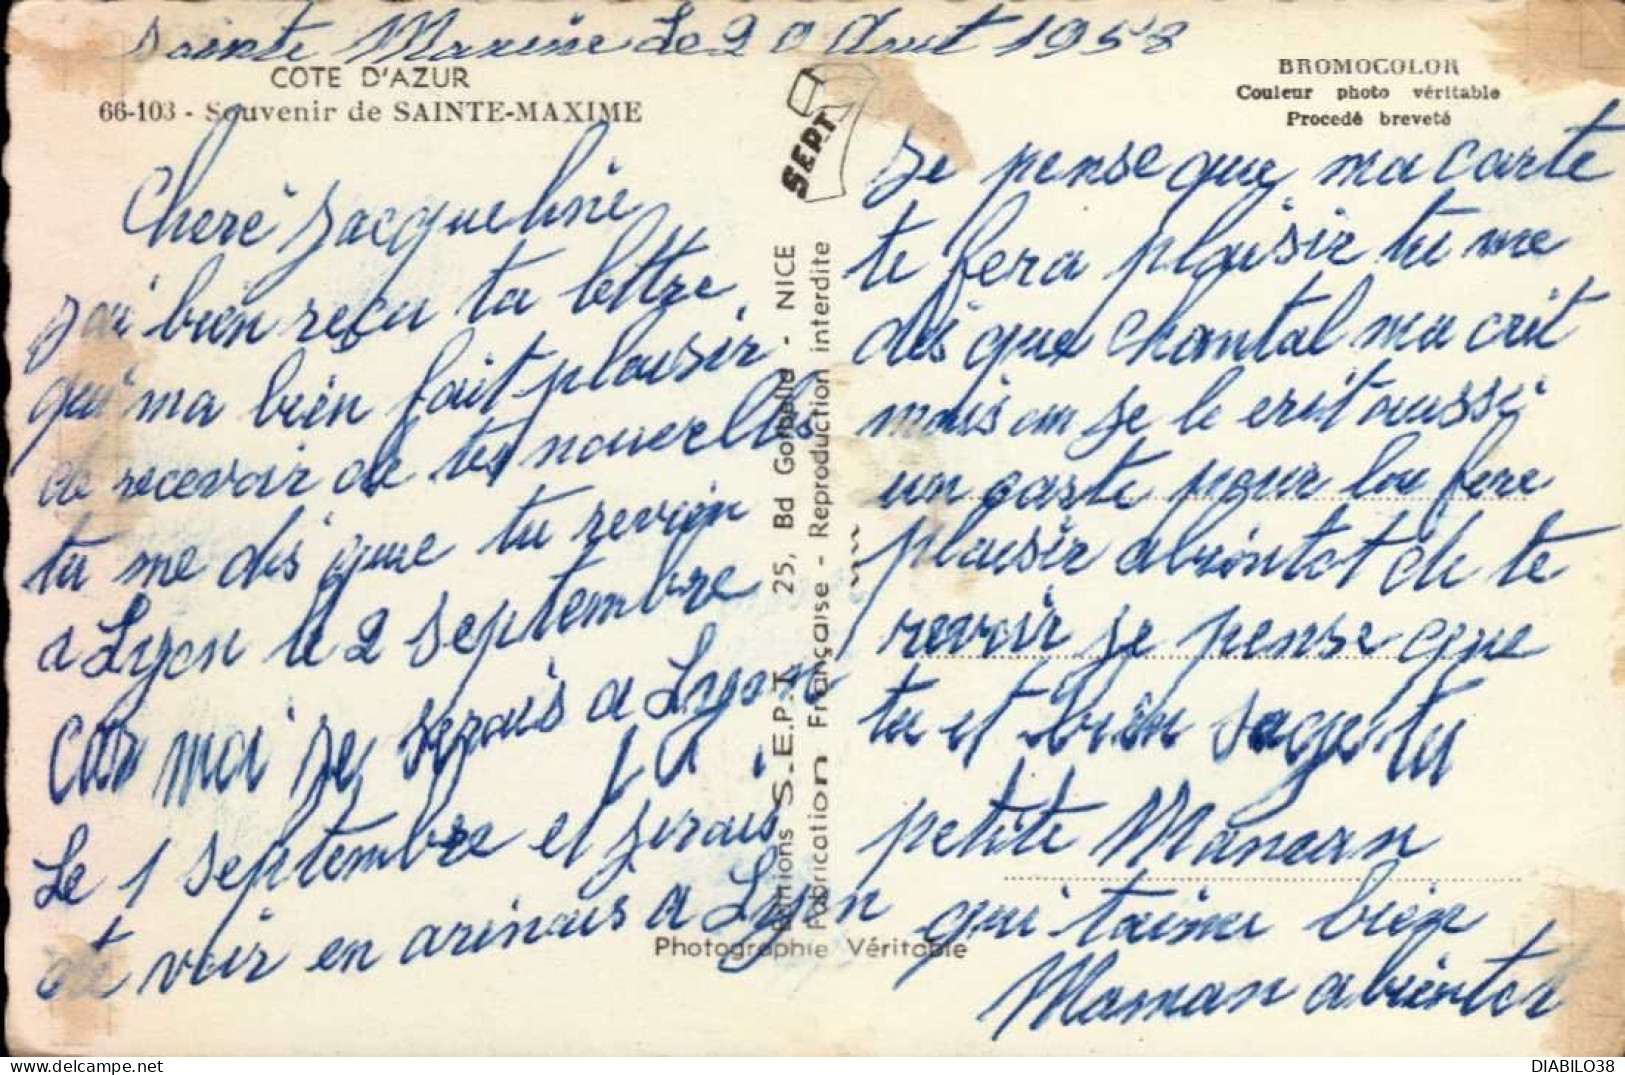 Sainte Maxime Le 20 Aout 1958
COTE D'AZUR
66-103 - Souvenir de SAINTE-MAXIME
BROMOCOLOR
Couleur photo véritable
Procedé breveté
SEPT
Cheré Jacqueline
J'ai bien reçu ta lettre
qui ma bien fait plaisir
de recevoir de tes nouvelles
tu me dis que tu revien
a Lyon le 2 septembre
car moi je serais a Lyon
Le 1 septembre et serais
de voir en arivais a Lyon
Editions S.E.P.T. 25, Bd Gorbella - NICE
Fabrication Française - Reproduction interdite
Photographie Véritable
Je pense que ma carte
te fera plaisir tu me
dis que Chantal ma crit
mais on je le crit aussi
un carte pour lou fere
plaisir abiontot de te
revoir je pense que
tu et bien sage ty
petite Maman
qui taime bien
Maman abientot
DIABILO38